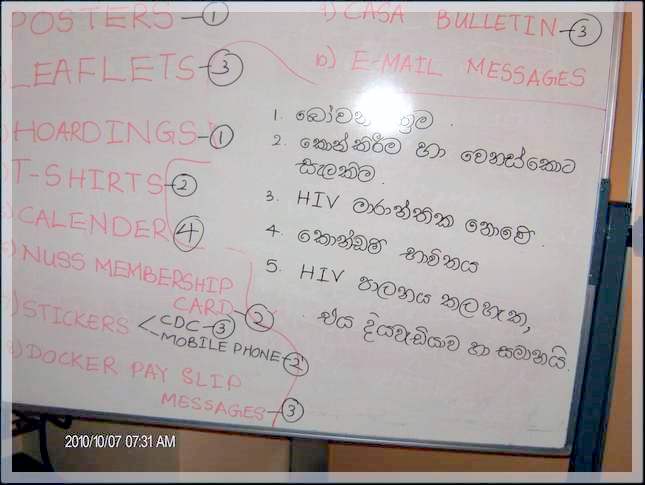 POSTERS - 1
LEAFLETS - 3
HOARDINGS - 1
T-SHIRTS - 2
CALENDER 4
NUSS MEMBERSHIP
CARD - 2
STICKERS < CDC - 3
MOBILE PHONE - 2
DOCKER PAY SLIP
MESSAGES - 3
CASA BULLETIN - 3
b) E-MAIL MESSAGES
1. බෝවන
2. කොන්කිරීම හා වෙනස්කොට
සැලකීම
3. HIV මාරාන්තික නොවේ.
4. කොන්ඩම් භාවිතය
5. HIV පාලනය කලහැක,
එය දියවැඩියාව හා සමානයි.
2010/10/07 07:31 AM